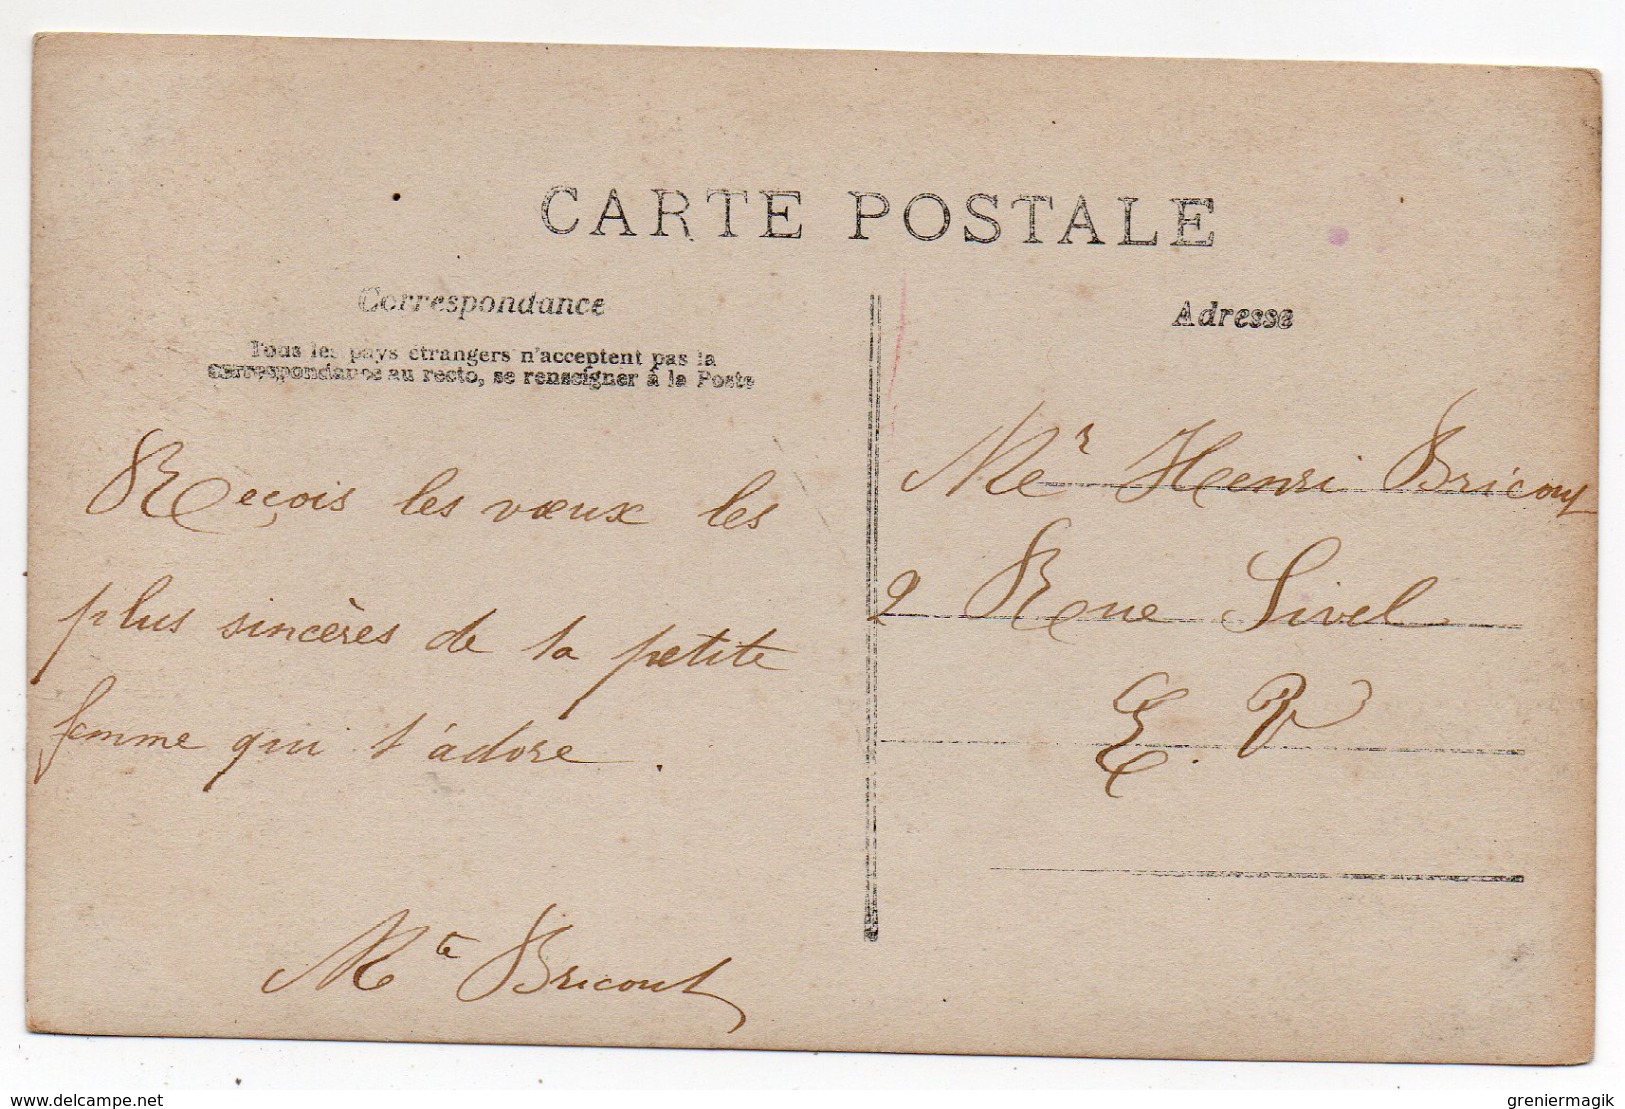 CARTE POSTALE
Correspondance
Tous les pays étrangers n'acceptent pas la
Correspondance au recto, se renseigner à la Poste
Reçois les vœux les
plus sincères de ta petite
femme qui t'adore.
Mte Bricout
Adresse
Mer Henri Bricout
2 Rue Sivel
E. V
delcampe.net
greniermagik